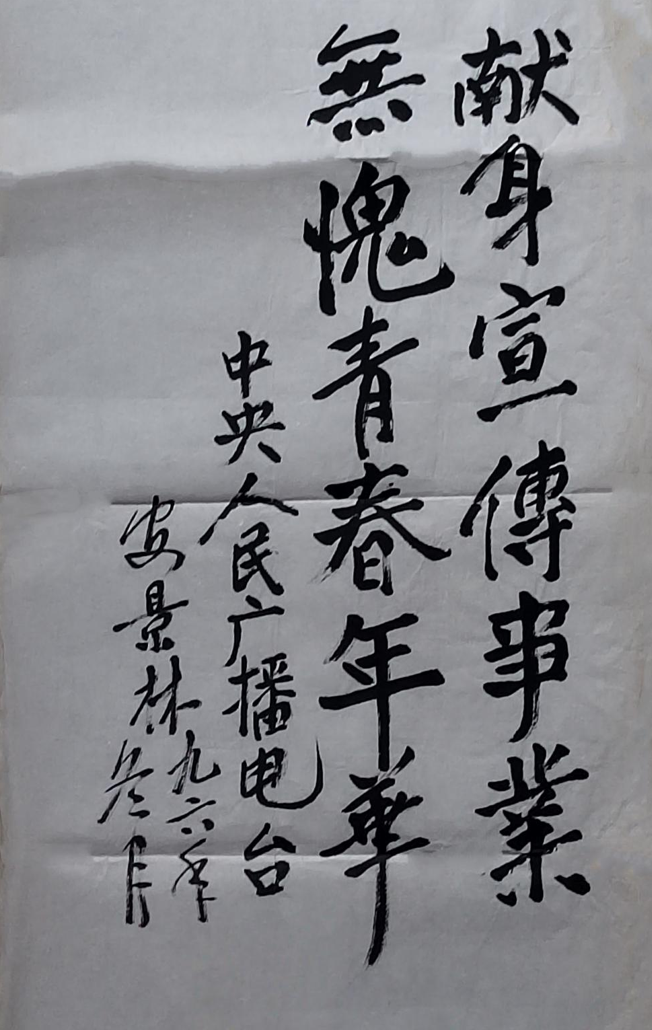 献身宣傳事業
無愧青春年華
中央人民广播电台
安景林
九六年
叁月